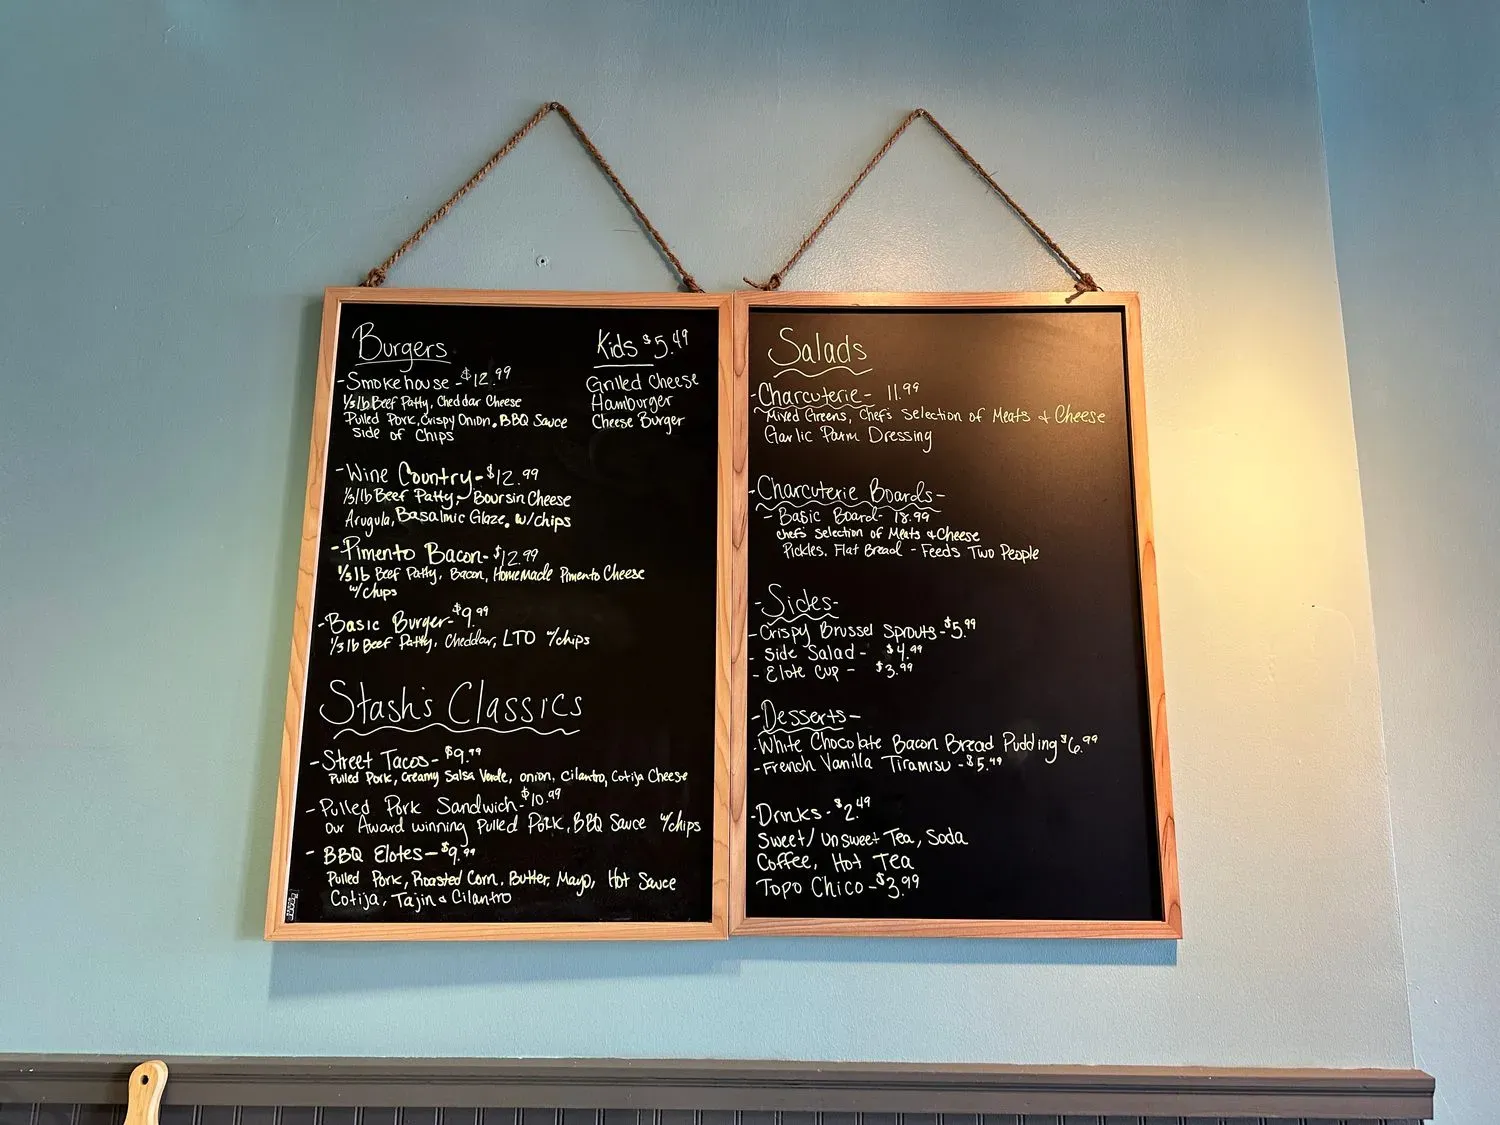 Burgers
-Smokehouse-$12.99
1/3lb Beef Patty, Cheddar Cheese
Pulled Pork, Crispy Onion, BBQ Sauce
Side of Chips
-Wine Country-$12.99
1/3lb Beef Patty, Boursin Cheese
Arugula, Basalmic Glaze, w/chips
-Pimento Bacon-$12.99
1/3lb Beef Patty, Bacon, HomeMade Pimento Cheese
w/chips
-Basic Burger-$9.99
1/3lb Beef Patty, Cheddar, LTO w/chips
Kids $5.49
Grilled Cheese
Hamburger
Cheese Burger
Stash's Classics
-Street Tacos-$9.99
Pulled Pork, Creamy Salsa Verde, onion, cilantro, Cotija Cheese
-Pulled Pork Sandwich-$10.99
our Award winning Pulled Pork, BBQ Sauce w/chips
-BBQ Elotes-$9.99
Pulled Pork, Roasted Corn, Butter, Mayo, Hot Sauce
Cotija, Tajin & Cilantro
Salads
-Charcuterie- 11.99
Mixed Greens, Chef's Selection of Meats & Cheese
Garlic Parm Dressing
-Charcuterie Boards-
-Basic Board- 18.99
chef's Selection of Meats & Cheese
Pickles, Flat Bread - Feeds Two People
-Sides-
-Crispy Brussel Sprouts-$5.99
-Side Salad- $4.99
-Elote Cup- $3.99
-Desserts-
-White Chocolate Bacon Bread Pudding $6.99
-French Vanilla Tiramisu-$5.49
-Drinks-$2.49
Sweet/Unsweet Tea, Soda
Coffee, Hot Tea
Topo Chico-$3.99